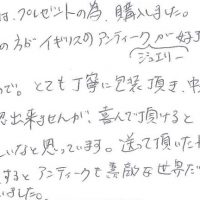 は、プレゼントの為、購入しました。
の方がイギリスのアンティークが好き
ジュエリー
ので。とても丁寧に包装頂き、中
認出来ませんが、喜んで頂けると
しいなと思っています。送って頂いた
するとアンティークも素敵な世界だ
いました。